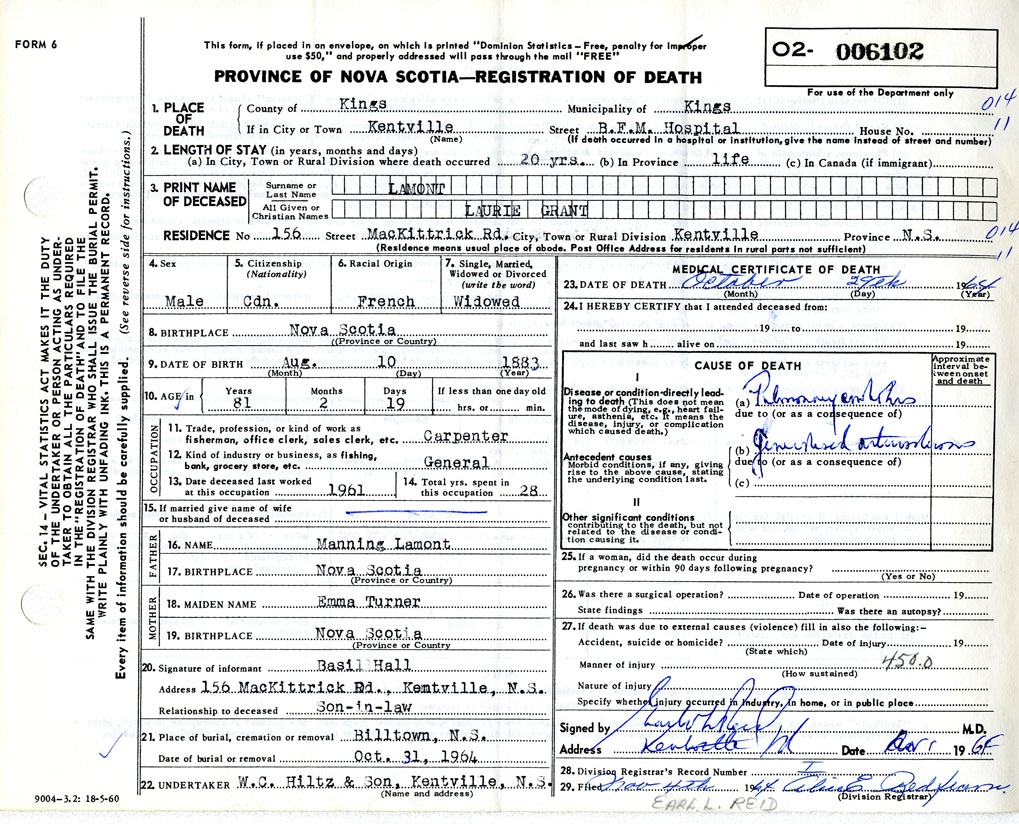 FORM 6
This form, if placed in an envelope, on which is printed "Dominion Statistics – Free, penalty for improper
use $50," and properly addressed will pass through the mail "FREE"
PROVINCE OF NOVA SCOTIA—REGISTRATION OF DEATH
O2- 006102
For use of the Department only
1. PLACE OF DEATH
County of Kings Municipality of Kings 014
If in City or Town Kentville Street B.F.M. Hospital House No. 11
(Name) (If death occurred in a hospital or institution, give the name instead of street and number)
2. LENGTH OF STAY (in years, months and days)
(a) In City, Town or Rural Division where death occurred 20 yrs. (b) In Province life (c) In Canada (if immigrant)
3. PRINT NAME OF DECEASED
Surname or Last Name LAMONT
All Given or Christian Names LAURIE GRANT
RESIDENCE No 156 Street MacKittrick Rd. City, Town or Rural Division Kentville Province N.S. 014
(Residence means usual place of abode. Post Office Address for residents in rural parts not sufficient) 11
4. Sex
Male
5. Citizenship
(Nationality)
Cdn.
6. Racial Origin
French
7. Single, Married, Widowed or Divorced
(write the word)
Widowed
8. BIRTHPLACE Nova Scotia
(Province or Country)
9. DATE OF BIRTH Aug. 10 1883
(Month) (Day) (Year)
10. AGE in
Years Months Days If less than one day old
81 2 19 hrs. or min.
OCCUPATION
11. Trade, profession, or kind of work as
fisherman, office clerk, sales clerk, etc. Carpenter
12. Kind of industry or business, as fishing,
bank, grocery store, etc. General
13. Date deceased last worked
at this occupation 1961
14. Total yrs. spent in
this occupation 28
15. If married give name of wife
or husband of deceased
FATHER
16. NAME Manning Lamont
17. BIRTHPLACE Nova Scotia
(Province or Country)
MOTHER
18. MAIDEN NAME Emma Turner
19. BIRTHPLACE Nova Scotia
(Province or Country
20. Signature of informant Basil Hall
Address 156 MacKittrick Rd., Kentville, N.S.
Relationship to deceased Son-in-law
21. Place of burial, cremation or removal Billtown, N.S.
Date of burial or removal Oct. 31, 1964
22. UNDERTAKER W.C. Hiltz & Son, Kentville, N.S.
(Name and address)
MEDICAL CERTIFICATE OF DEATH
23. DATE OF DEATH October 29th 1964
(Month) (Day) (Year)
24. I HEREBY CERTIFY that I attended deceased from:
19 to 19
and last saw h alive on 19
CAUSE OF DEATH
Approximate interval between onset and death
I
Disease or condition directly leading to death (This does not mean
the mode of dying, e.g., heart failure, asthenia, etc. It means the
disease, injury, or complication
which caused death.)
(a) Pulmonary embolus
due to (or as a consequence of)
Antecedent causes
Morbid conditions, if any, giving
rise to the above cause, stating
the underlying condition last.
(b) Generalised arteriosclerosis
due to (or as a consequence of)
(c)
II
Other significant conditions
contributing to the death, but not
related to the disease or condition causing it.
25. If a woman, did the death occur during
pregnancy or within 90 days following pregnancy?
(Yes or No)
26. Was there a surgical operation? Date of operation 19
State findings Was there an autopsy?
27. If death was due to external causes (violence) fill in also the following:–
Accident, suicide or homicide? Date of injury 19
(State which)
Manner of injury 450.0
(How sustained)
Nature of injury
Specify whether injury occurred in industry, in home, or in public place
Signed by Earl L Reid M.D.
Address Kentville Date Nov 1 1964
28. Division Registrar's Record Number
29. Filed Nov 4th 1964 Alice E. Redfearn
(Division Registrar)
EARL L. REID
SEC. 14 – VITAL STATISTICS ACT MAKES IT THE DUTY
OF THE UNDERTAKER OR PERSON ACTING AS UNDER-
TAKER TO OBTAIN ALL THE PARTICULARS REQUIRED
IN THE "REGISTRATION OF DEATH" AND TO FILE THE
SAME WITH THE DIVISION REGISTRAR WHO SHALL ISSUE THE BURIAL PERMIT.
WRITE PLAINLY WITH UNFADING INK. THIS IS A PERMANENT RECORD.
Every item of information should be carefully supplied. (See reverse side for instructions.)
9004-3.2: 18-5-60